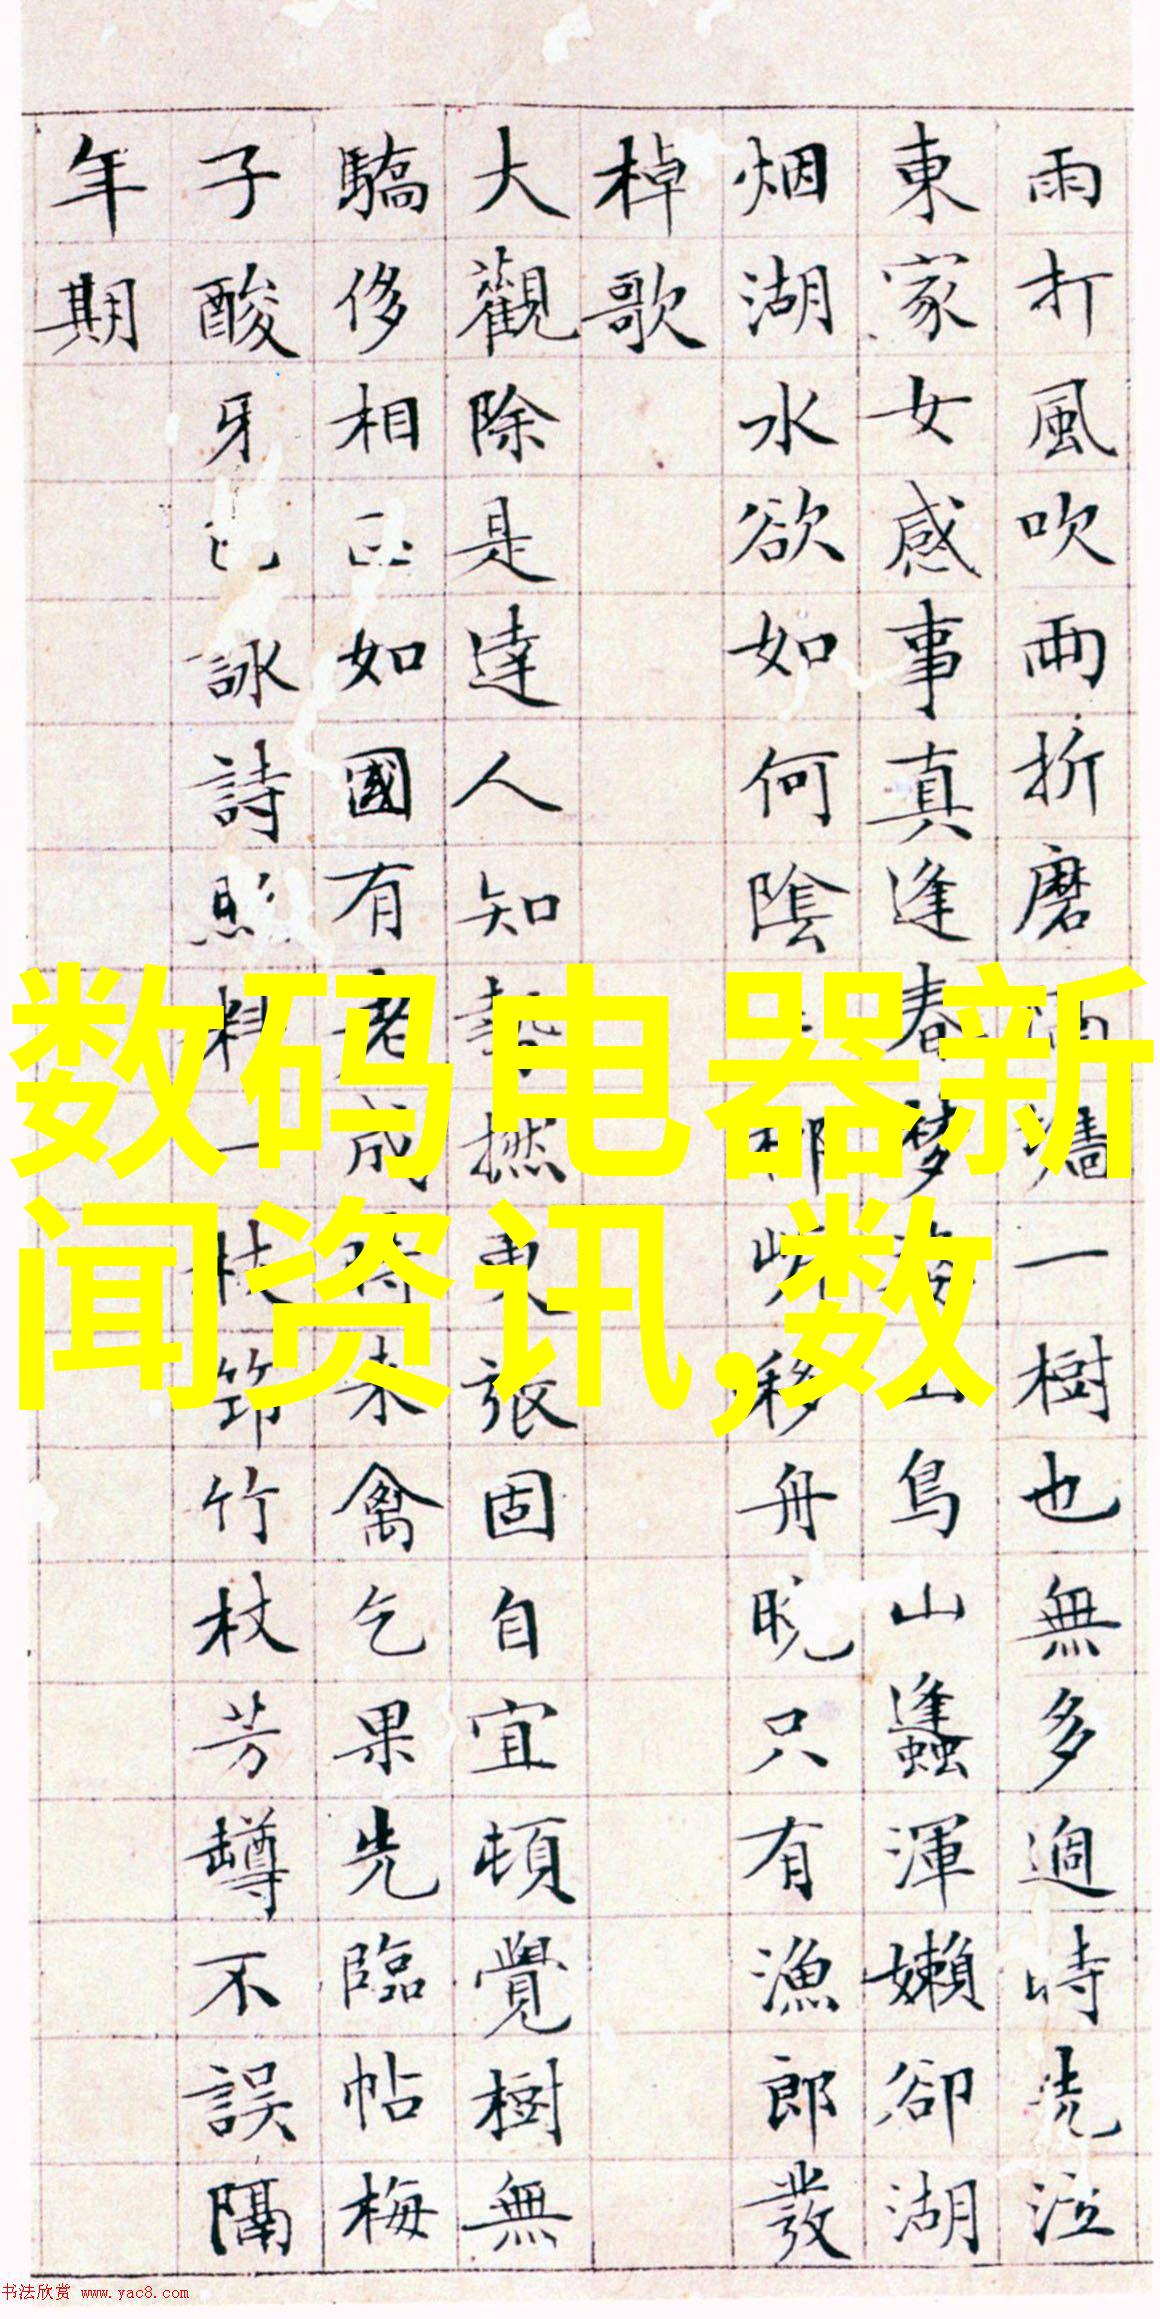 雨打風吹兩折磨一樹也無多過時洗泣
東家女感事真逢春夢山鳥山蠭渾嬾卻湖
烟湖水欲如何陰移舟晚只有漁郎發
棹歌
大觀除是達人知撚更張固自宜頓覺樹無
驕侈相如國有老成未禽乞果先臨帖梅
子酸牙詠詩照料一枝筇竹杖芳罇不誤隔
年期
数码电器新
闻资讯,数
书法欣赏 www.yac8.com